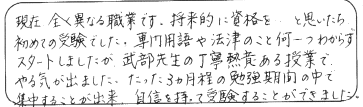 現在 全く異なる職業です。将来的に資格を、と思いたち
初めての受験でした。専門用語や法津のこと何一つわからず
スタートしましたが 武部先生の丁寧熱貴ある授業で
やる気が出ました。たった3ヵ月程の勉強期間の中で
集中することが出来、自信を持って受験することができました。